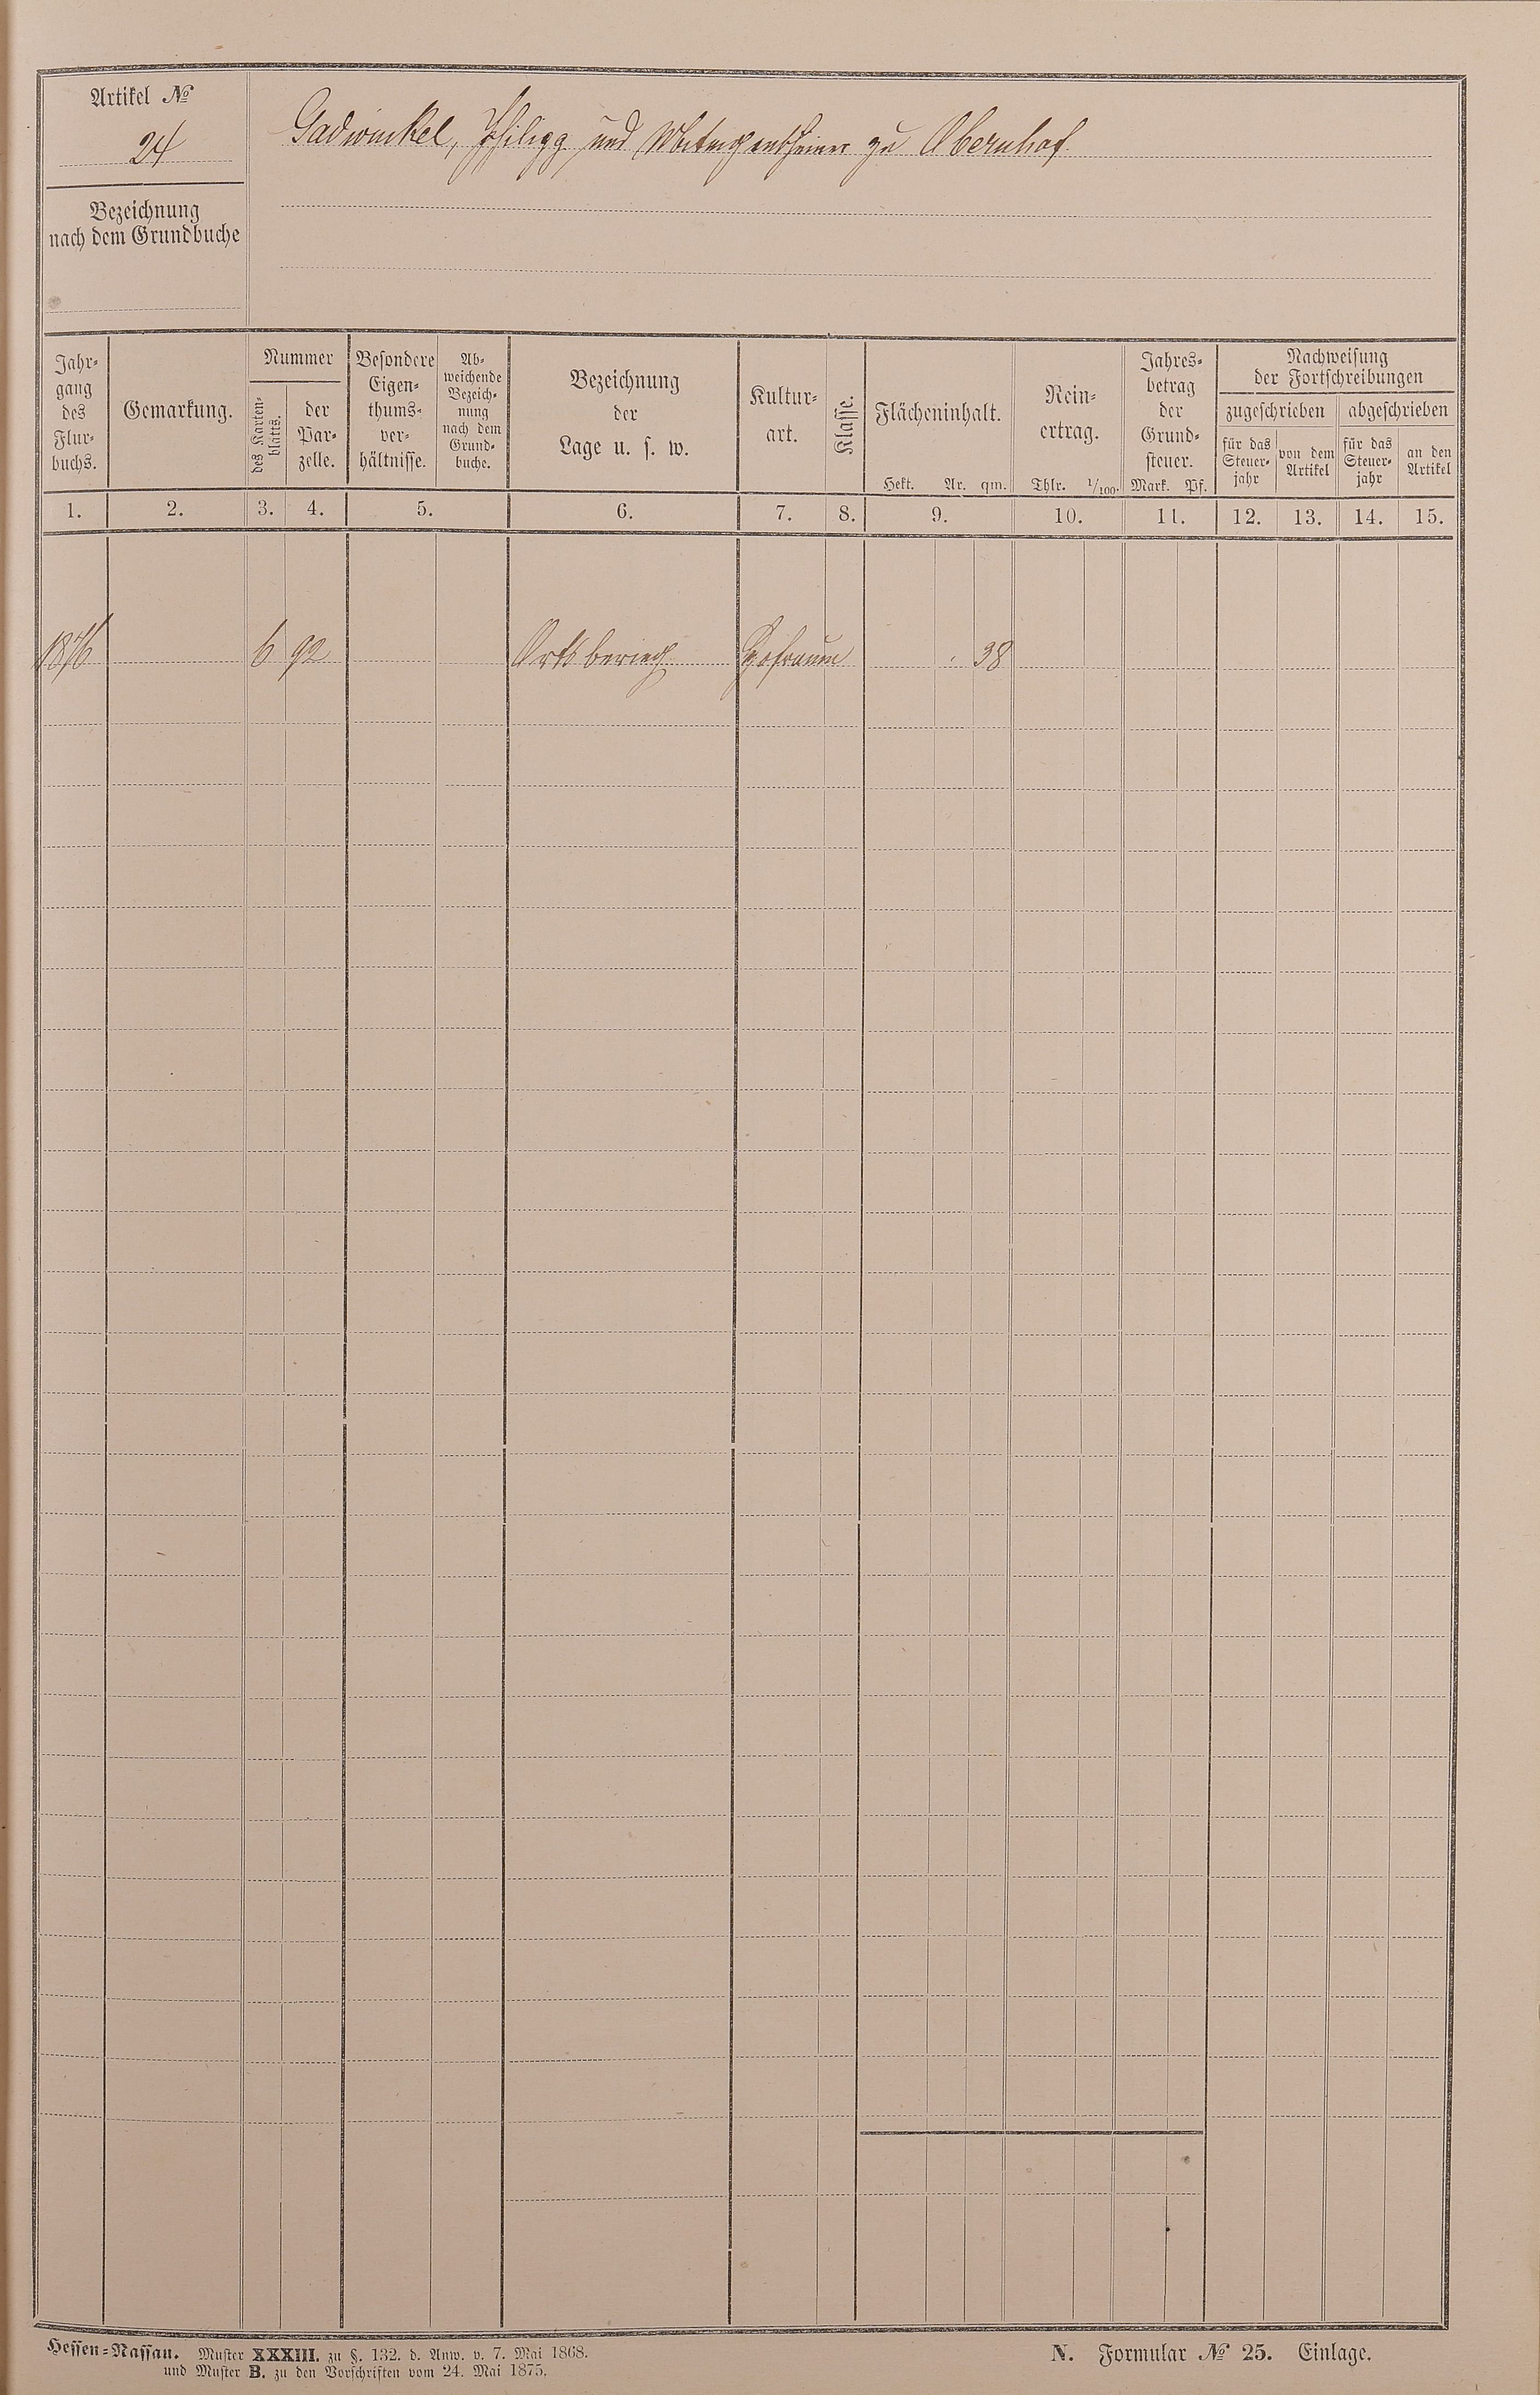 Artikel №
24
Gadwinkel, Philipp und Miteigenthümer zu Obernhof
Bezeichnung
nach dem Grundbuche
Jahr-
gang
des
Flur-
buchs.
Gemarkung.
Nummer
des Karten-
blatts.
der
Par-
zelle.
Besondere
Eigen-
thums-
ver-
hältnisse.
Ab-
weichende
Bezeich-
nung
nach dem
Grund-
buche.
Bezeichnung
der
Lage u. s. w.
Kultur-
art.
Klasse.
Flächeninhalt.
Hekt. Ar. qm.
Rein-
ertrag.
Thlr. 1/100.
Jahres-
betrag
der
Grund-
steuer.
Mark. Pf.
Nachweisung
der Fortschreibungen
zugeschrieben abgeschrieben
für das
Steuer-
jahr
von dem
Artikel
für das
Steuer-
jahr
an den
Artikel
1. 2. 3. 4. 5. 6. 7. 8. 9. 10. 11. 12. 13. 14. 15.
1876 6 92 Ortsberieg Hofraum 38
Hessen-Nassau. Muster XXXIII. zu §. 132. d. Anw. v. 7. Mai 1868.
und Muster B. zu den Vorschriften vom 24. Mai 1875.
N. Formular № 25. Einlage.